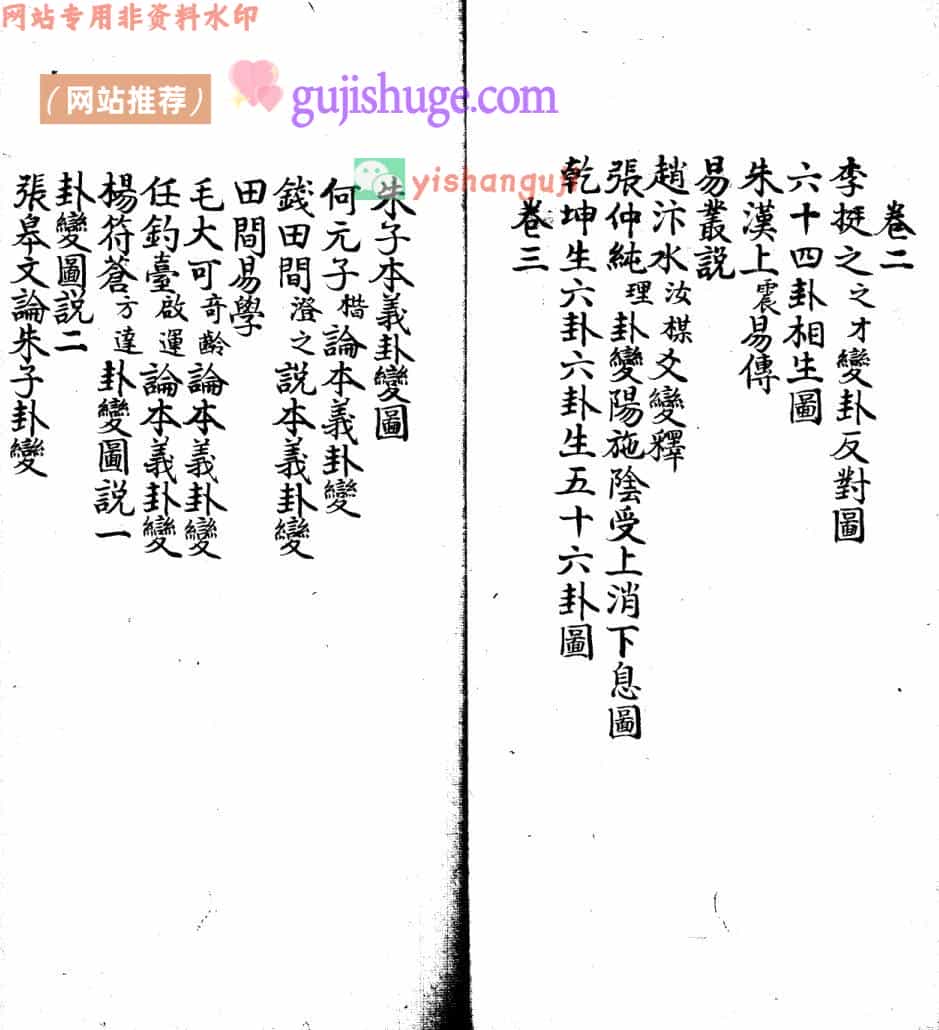 网站专用非资料水印
(网站推荐)
gujishuge.com
yishanguji
卷二
李挺之之才變卦反對圖
六十四卦相生圖
朱漢上震易傳
易叢説
趙汴水汝楳爻變釋
張仲純理卦變陽施陰受上消下息圖
乾坤生六卦六卦生五十六卦圖
卷三
朱子本義卦變圖
何元子楷論本義卦變
錢田間澄之説本義卦變
田間易學
毛大可奇齡論本義卦變
任釣臺啟運論本義卦變
楊符蒼方達卦變圖説一
卦變圖説二
張皋文論朱子卦變